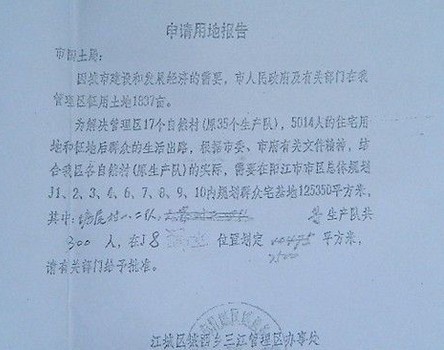 申请用地报告
市国土局:
因城市建设和发展经济的需要,市人民政府及有关部门在我
管理区征用土地1837亩。
为解决管理区17个自然村(原35个生产队),5014人的住宅用
地和征地后群众的生活出路,根据市委、市府有关文件精神,结
合我区各自然村(原生产队)的实际,需要在阳江市市区总体规划
J1、2、3、4、6、7、8、9、10内规划群众宅基地125350平方米,
其中: 村一二队 生产队共
300人,在J8 位置划定 7500 平方米,
请有关部门给予批准。
江城区 西乡三江管理区办事处